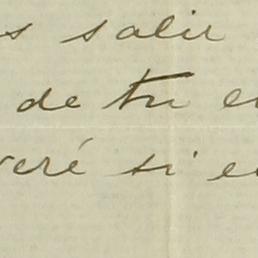 s salir
de tu e
veré si e